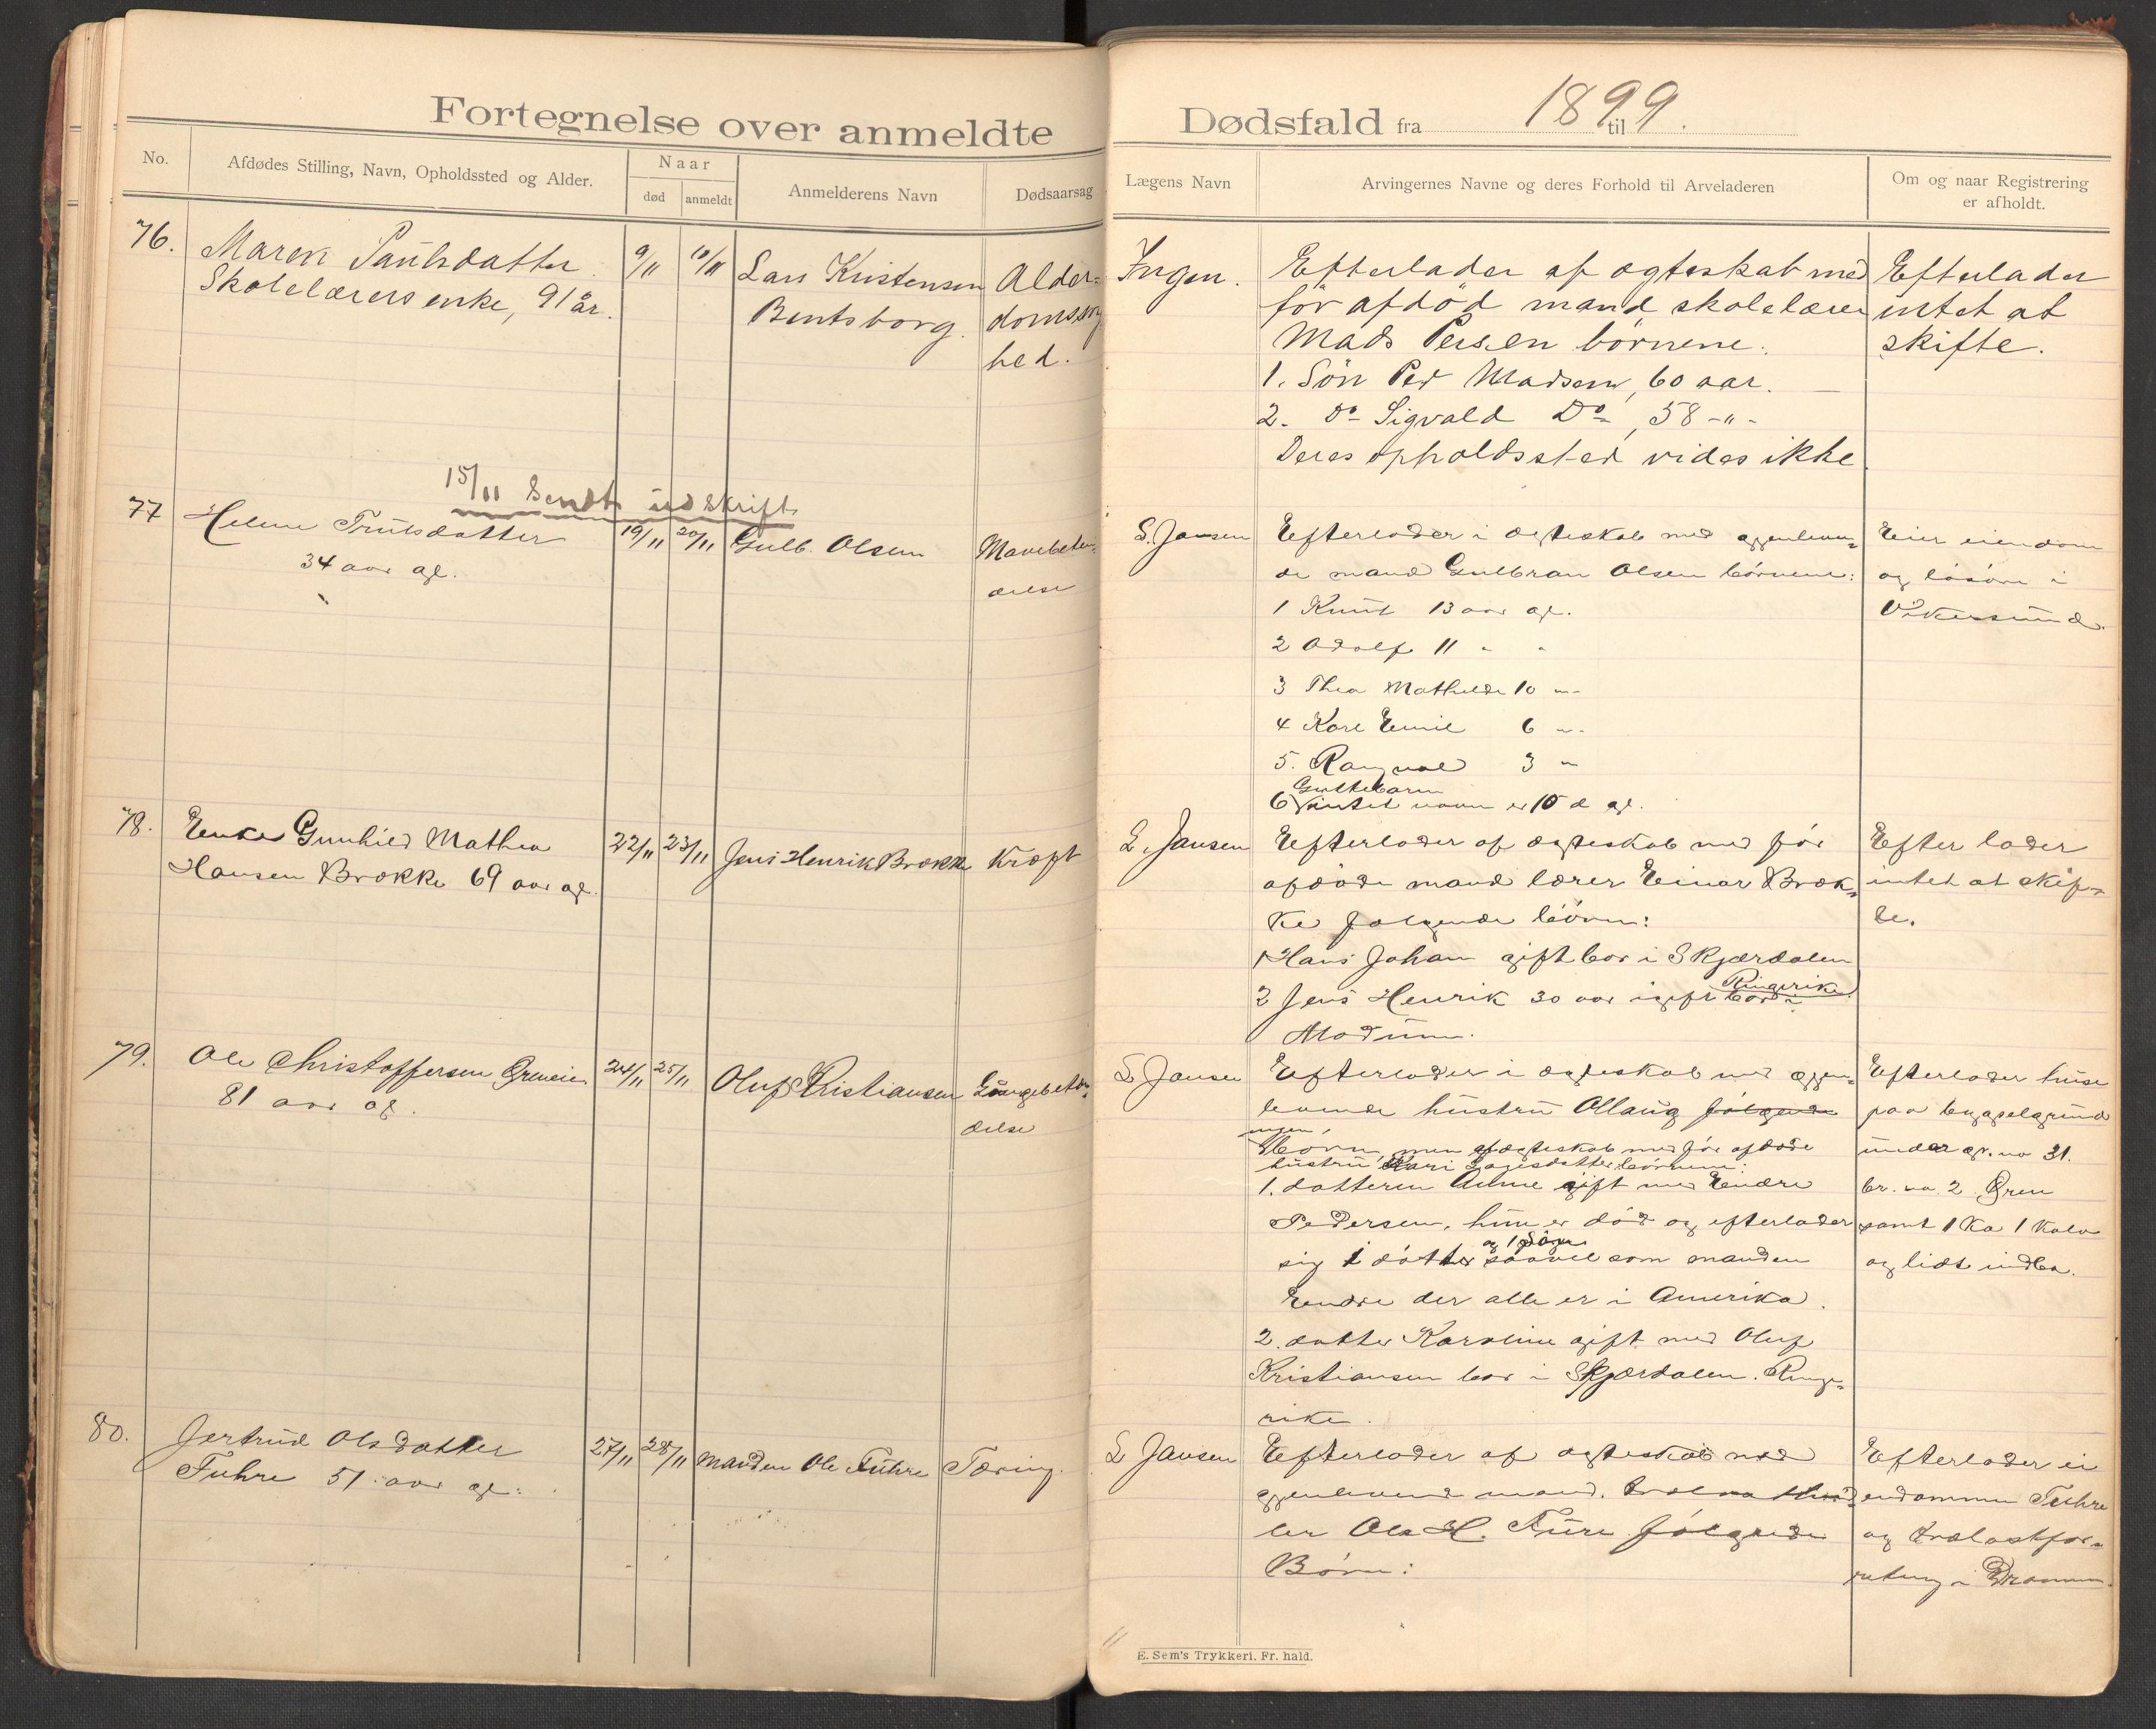 Fortegnelse over anmeldte
No.
Afdødes Stilling, Navn, Opholdssted og Alder.
Naar
død
anmeldt
Anmelderens Navn
Dødsaarsag
76.
Maren Paulsdatter
Skolelærers enke, 91 år.
9/11
10/11
Lars Kristensen
Bentsborg.
Alder-
domssvag
hed.
15/11 Sendt udskrift
77
Helene Trulsdatter
34 aar gl.
19/11
20/11
Gulb. Olsen
Mavebetæn-
delse
78.
Enke Gunhild Mathea
Hansen Brække 69 aar gl.
22/11
23/11
Jens Henrik Brække
Kræft
79.
Ole Christoffersen Greneie.
81 aar gl.
24/11
25/11
Oluf Kristiansen
Lungebetæn-
delse
80.
Jertrud Olsdatter
Fuhre 51 aar gl.
27/11
28/11
Manden Ole Fuhre
Tæring.
Dødsfald fra 1899 til
Lægens Navn
Arvingernes Navne og deres Forhold til Arveladeren
Om og naar Registrering
er afholdt.
Ingen.
Efterlader af ægteskab med
før afdöd mand skolelærer
Mads Persen börnene:
1. Sön Per Madsen, 60 aar.
2. Do Sigvald Do, 58 -"-
Deres opholdssted vides ikke
Efterlader
intet at
skifte.
L. Jansen
Efterlader i ægteskab med gjenleven-
de mand Gulbran Olsen börnene:
1 Knut 13 aar gl.
2 Adolf 11 " "
3 Thea Mathilde 10 "-
4 Karl Emil 6 "-
5. Rangval 3 "
Guttebarn
6 intet navn er 10 d gl.
Eier eiendom
og lösöre i
Vikersund.
L. Jansen
Efterlader af ægteskab med før
afdøde mand lærer Einar Bræk-
ke følgende börn:
1 Hans Johan gift bor i Skjærdalen
Ringerike
2 Jens Henrik 30 aar igift bor i
Modum.
Efterlader
intet at skif-
te.
L Jansen
Efterlader i ægteskab med gjen-
levende hustru Ollaug følgende
ingen
börn men af ægteskab med før afdøde
hustru Kari börnene:
1. datteren Anne gift med Endre
Pedersen, hun er död og efterlader
og 1 Sön
sig 1 datter saavel som manden
Endre der alle er i Amerika.
2. datter Karoline gift med Oluf
Kristiansen bor i Skjærdalen. Ringe-
rike.
Efterlader huse
paa bygselgrund
under gr. no 31.
br. no 2 Gren
samt 1 Ko 1 Kalv
og lidt indbo.
L Jansen
Efterlader af ægteskab med
gjenlevende mand. trælasthand-
ler Ole H. Fure følgende
Börn:
Efterlader ei
endommen Fuhre
og trælastfor-
retning i Drammen.
E. Sem's Trykkeri. Fr. hald.